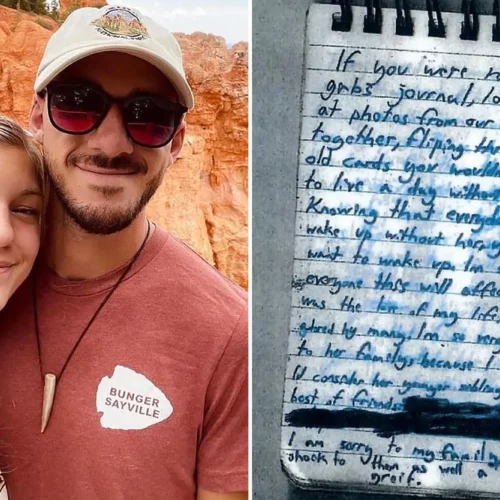 BUNGER
SAYVILLE
If you were
gabs journal, lo
at photos from our
together, fliping thr
old cards you would
to live a day witho
Knowing that everyda
wake up without her
want to wake up. Im
everyone this will affec
was the lov of my life
by many. Im so
to her familys because I
I'd consider her younger
best of friends
I am sorry to my family
shock to them as well a
greif.